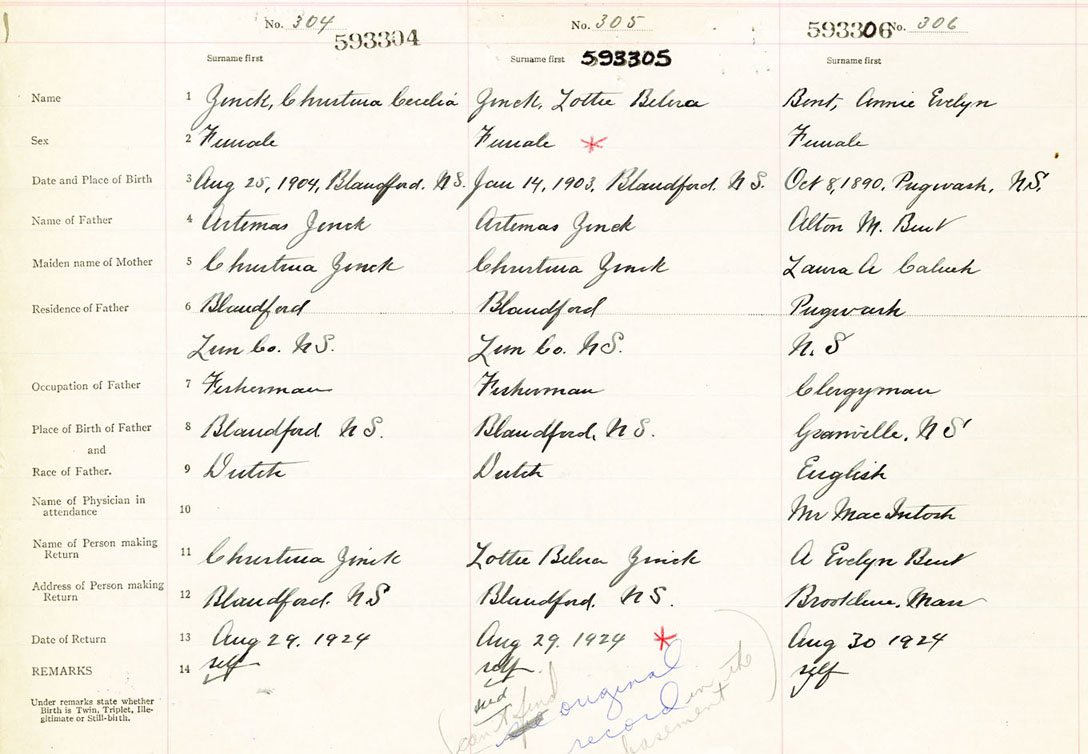 No. 304 No. 305 No. 306
593304 593305 593306
Surname first Surname first Surname first
Name 1 Zinck, Christina Cecelia Zinck, Lottie Belvra Bent, Annie Evelyn
Sex 2 Female Female * Female
Date and Place of Birth 3 Aug 25, 1904, Blandford. N S. Jan 14, 1903, Blandford, N S. Oct 8, 1890. Pugwash, N.S.
Name of Father 4 Artemas Zinck Artemas Zinck Alton M. Bent
Maiden name of Mother 5 Christina Zinck Christina Zinck Laura A
Residence of Father 6 Blandford Blandford Pugwash
Lun Co. N S. Lun Co. N S. N. S
Occupation of Father 7 Fisherman Fisherman Clergyman
Place of Birth of Father 8 Blandford N S. Blandford, N S. Granville, N S
and
Race of Father. 9 Dutch Dutch English
Name of Physician in
attendance 10 Mr MacIntosh
Name of Person making
Return 11 Christina Zinck Lottie Belvra Zinck A Evelyn Bent
Address of Person making
Return 12 Blandford. N S Blandford. N S. Brookline, Mass
Date of Return 13 Aug 29. 1924 Aug 29. 1924 * Aug 30 1924
REMARKS 14 self self self
Under remarks state whether
Birth is Twin, Triplet, Ille-
gitimate or Still-birth.
see original
record
(can't find in the
basement)